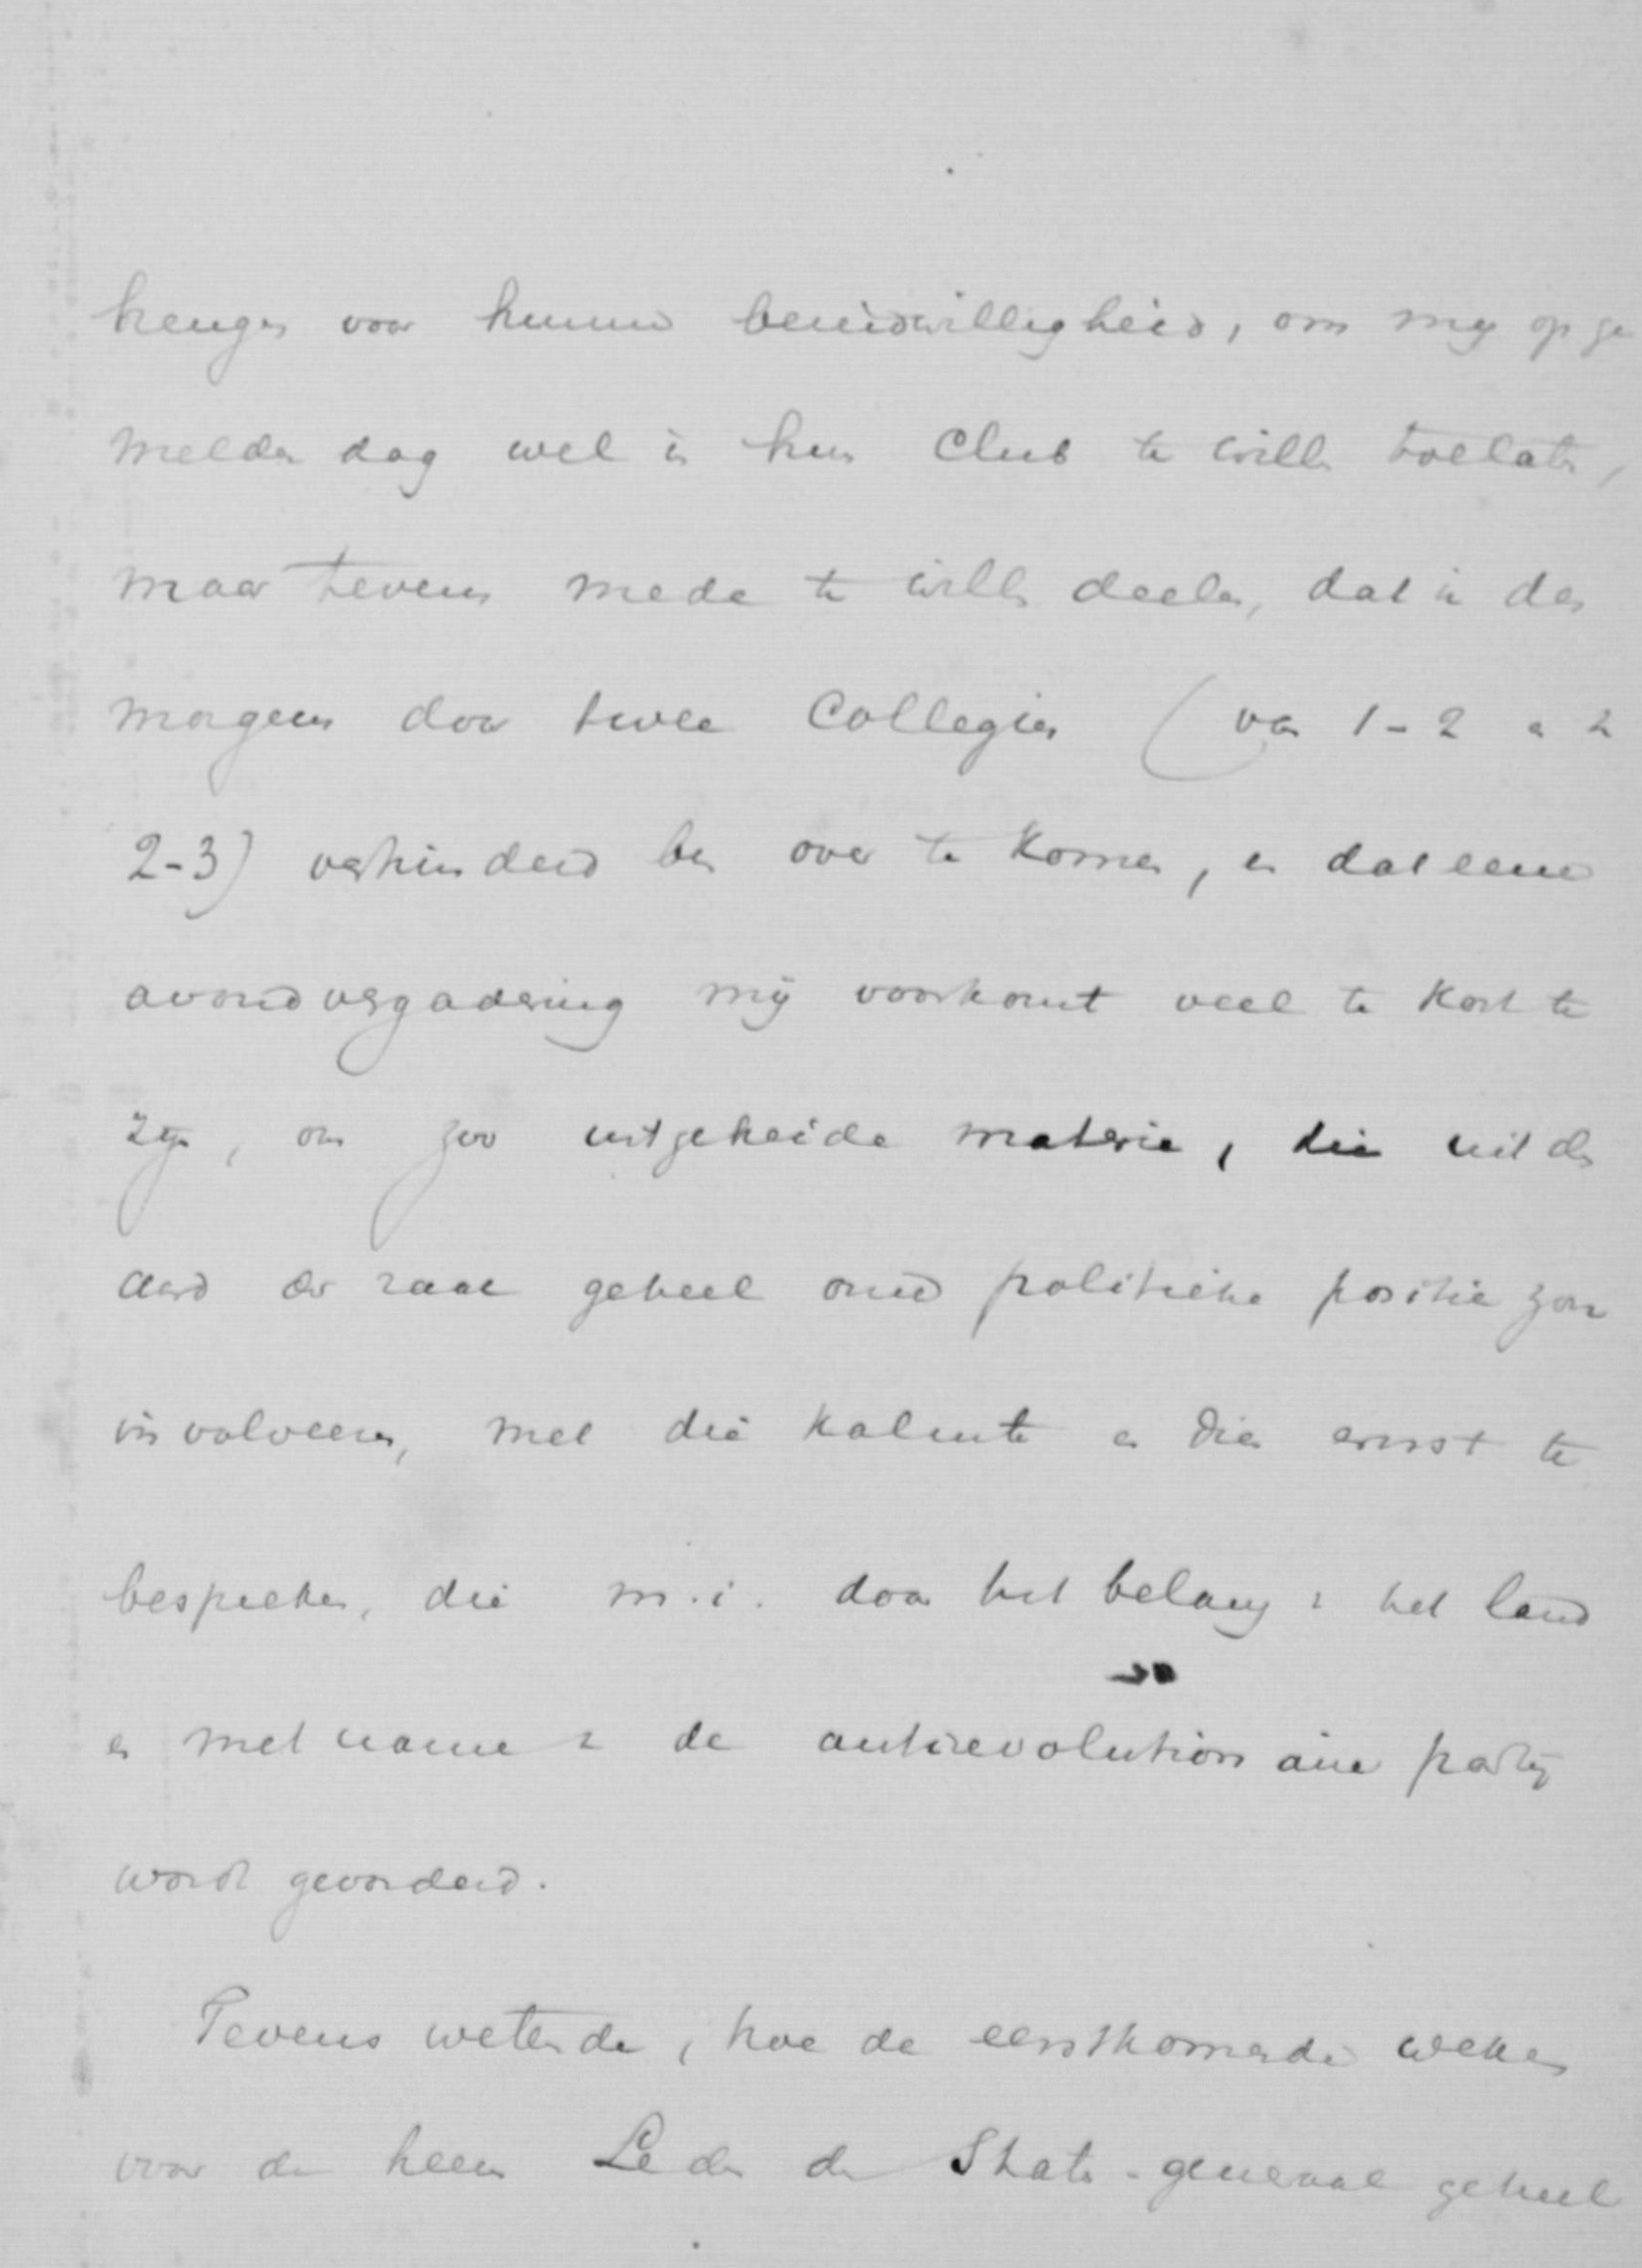 brengen voor hunne bereidwilligheid, om mij op ge
melden dag wel in hun Club te willen toelaten,
maar tevens mede te willen deelen, dat ik des
morgens door twee Collegien (van 1-2 en
2-3) verhinderd ben over te komen, en dat eene
avondvergadering mij voorkomt veel te kort te
zijn, om zoo uitgebreide materie, die uit den
aard der zaak geheel onze politieke positie zou
involveeren, met die kalmte en dien ernst te
bespreken, die m.i. door het belang v het land
en met name v de antirevolutionaire partij
wordt gevorderd.
Tevens wetende, hoe de eerstkomende weken
voor de heeren Leden der Staten-generaal geheel